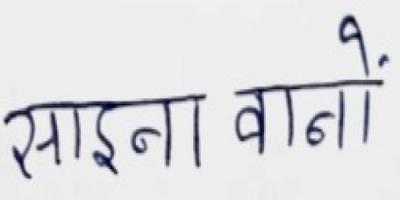 साइना वानों